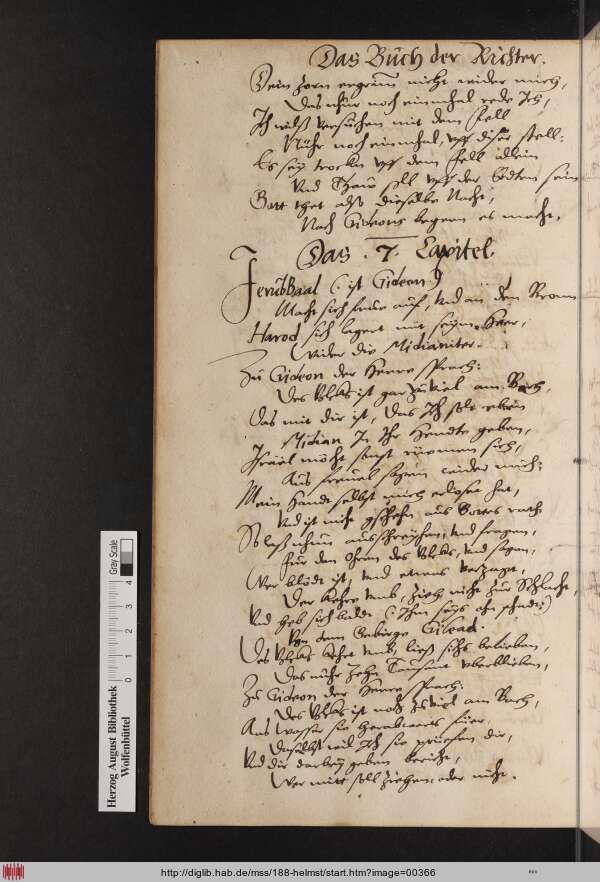 Das Buch der Richter.
Dein zorn ergrim nicht wider mich,
Das nhur noch einmhal rede Ich,
Ich wils versuchen mit dem fell
Nuhr noch einmhal, uff diser stell:
Es sey trocken uff dem fell allein
Und Thaw soll uff der Erdten sein
Gott thet alß dieselbe Nacht,
Nach Gideons begern es macht.
Das .7. Capitel.
JerubBaal (ist Gideon)
Macht sich frue auf, und an den Bronn
Harod sich lagert mit seym Heer,
Wider die Midianiter.
Zu Gideon der Herre sprach:
Des Volks ist gar zuviel am Bach,
Das mit dir ist, das Ich solt eben
Midian In Ihr Hendte geben,
Israel möcht sonst rümen sich,
Aus frevel sagen wider mich:
Mein Handt selbst mich erlöset hat,
Und ist nicht geschehen aus Gottes rath
So laß nhun ausschreyhen, und fragen,
Für den Ohren des Volks, und sagen,
Wer blödt ist, und etwas verzagt,
Der kehre umb, zieh nicht zur Schlacht,
Und heb sich baldt (Ihm seys ohn schade)
Von dem Gebirge Gilead.
Des Volks kehrt umb, ließ sichs belieben,
Das nuhr Zehn Tausent uberblieben,
Zu Gideon der Herre sprach:
Des Volks ist noch zuviel am Bach,
Ans Wasser sie herabwerts führ,
Daselbst will Ich sie prüefen dir,
Und dir darbey geben bericht,
Wer mitt soll ziehen oder nicht.
Herzog August Bibliothek
Wolfenbüttel
0 1 2 3 4
Gray Scale
http://diglib.hab.de/mss/188-helmst/start.htm?image=00366